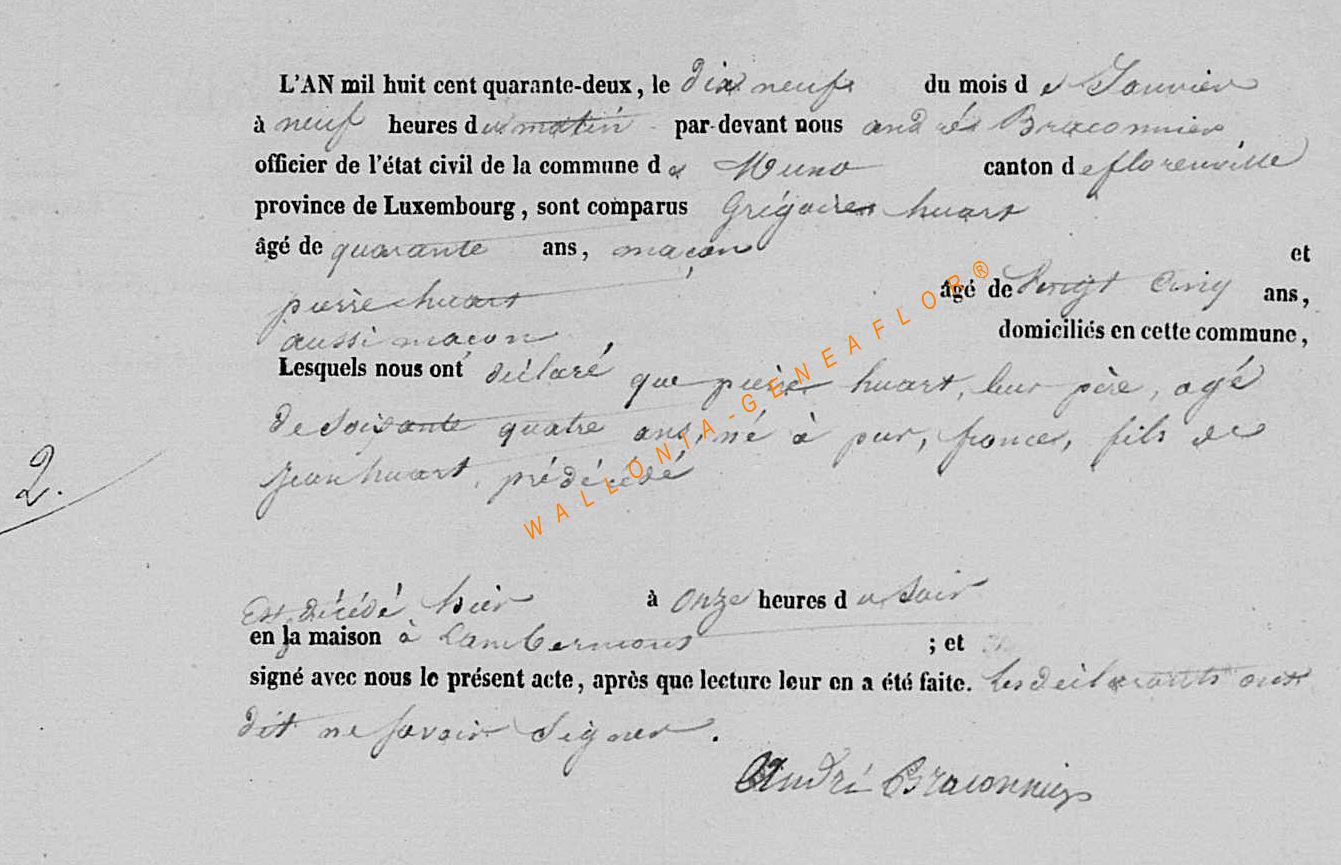 L'AN mil huit cent quarante-deux, le dix neuf du mois de Janvier
à neuf heures du matin par-devant nous andré Braconnier
officier de l'état civil de la commune de Muno canton de florenville
province de Luxembourg, sont comparus Grégoire huart
âgé de quarante ans, maçon et
pierre huart âgé de Vingt Cinq ans,
aussi maçon domiciliés en cette commune,
Lesquels nous ont déclaré que pierre huart, leur père, agé
de soixante quatre ans, né à pur, france, fils de
jean huart, prédécédé
2.
Est décédé hier à onze heures du soir
en la maison à Lambermont ; et
signé avec nous le présent acte, après que lecture leur en a été faite. Les déclarants ont
dit ne savoir signer.
André Braconnier
WALLONIA-GENEAFLOR®